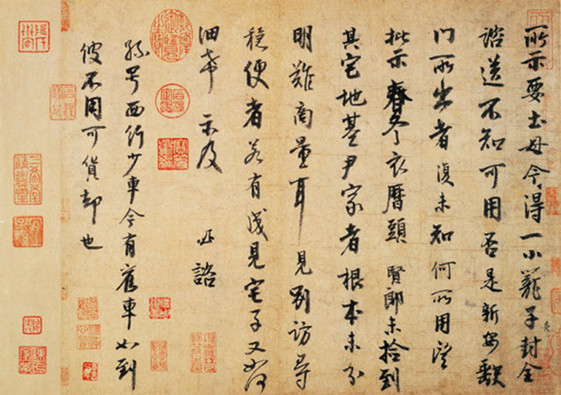 所示要土母今得一小籠子封全
諮送不知可用否是新安缺
門所出者復未知何所用望
批示春冬衣曆頭賢郎未拾到
其宅地基尹家者根本未分
明難商量耳見別訪尋
穩便者若有成見宅子又如何
細希示及 諮
孫号西行少車今有舊車如到
彼不用可貨却也